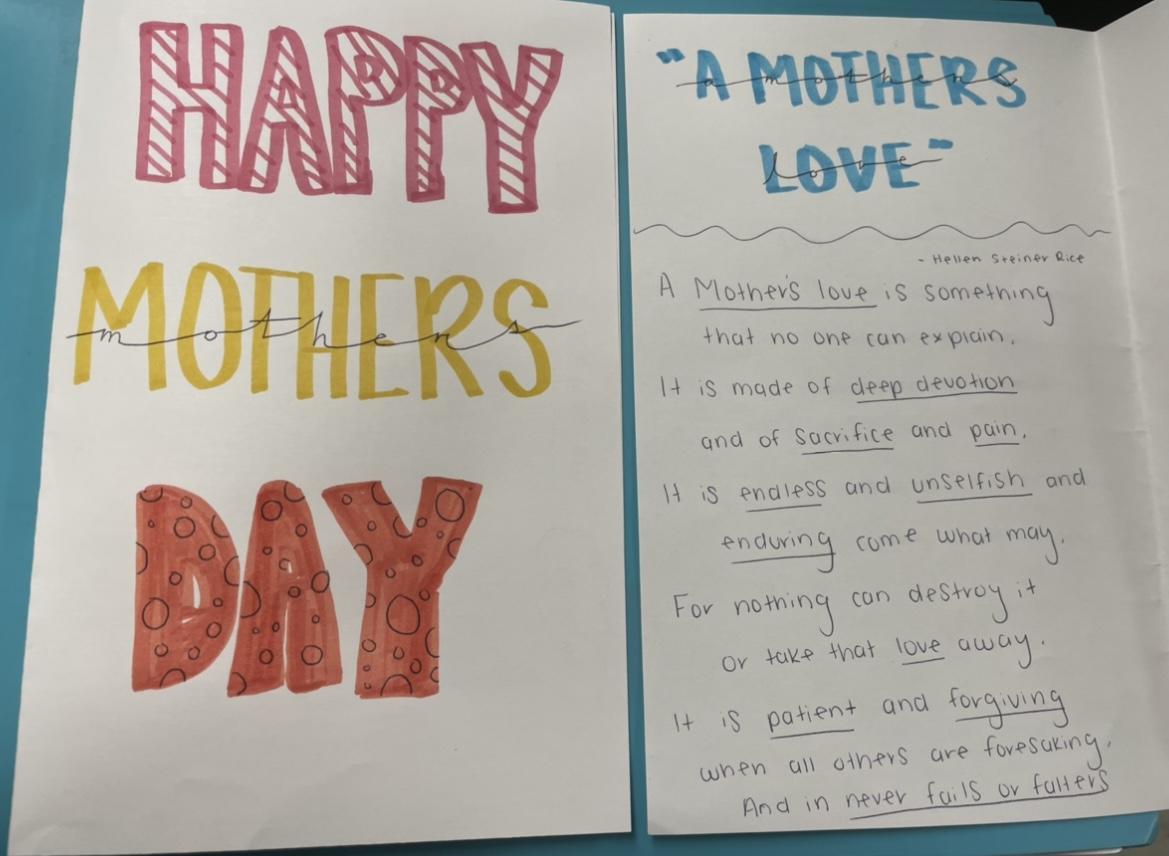 HAPPY
MOTHERS
mothers
DAY
"A MOTHERS
a mothers
LOVE"
love
- Hellen Steiner Rice
A Mother's love is something
that no one can explain,
It is made of deep devotion
and of sacrifice and pain,
It is endless and unselfish and
enduring come what may,
For nothing can destroy it
or take that love away.
It is patient and forgiving
when all others are foresaking,
And in never fails or falters